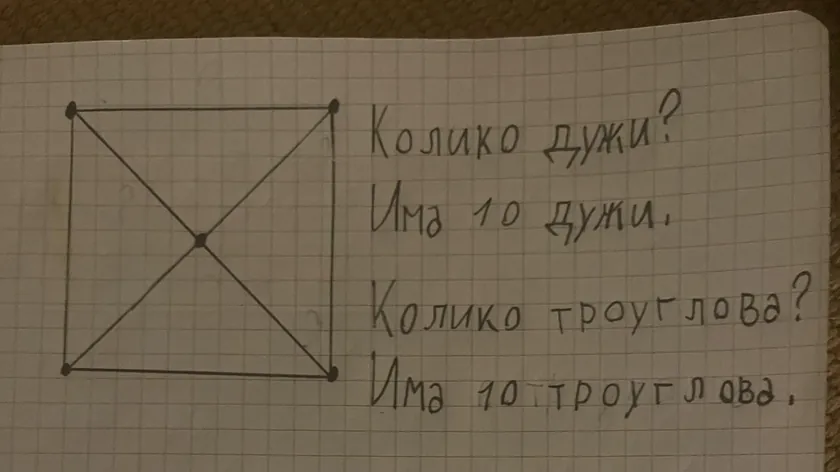 Колико дужи?
Има 10 дужи.
Колико троуглова?
Има 10 троуглова.